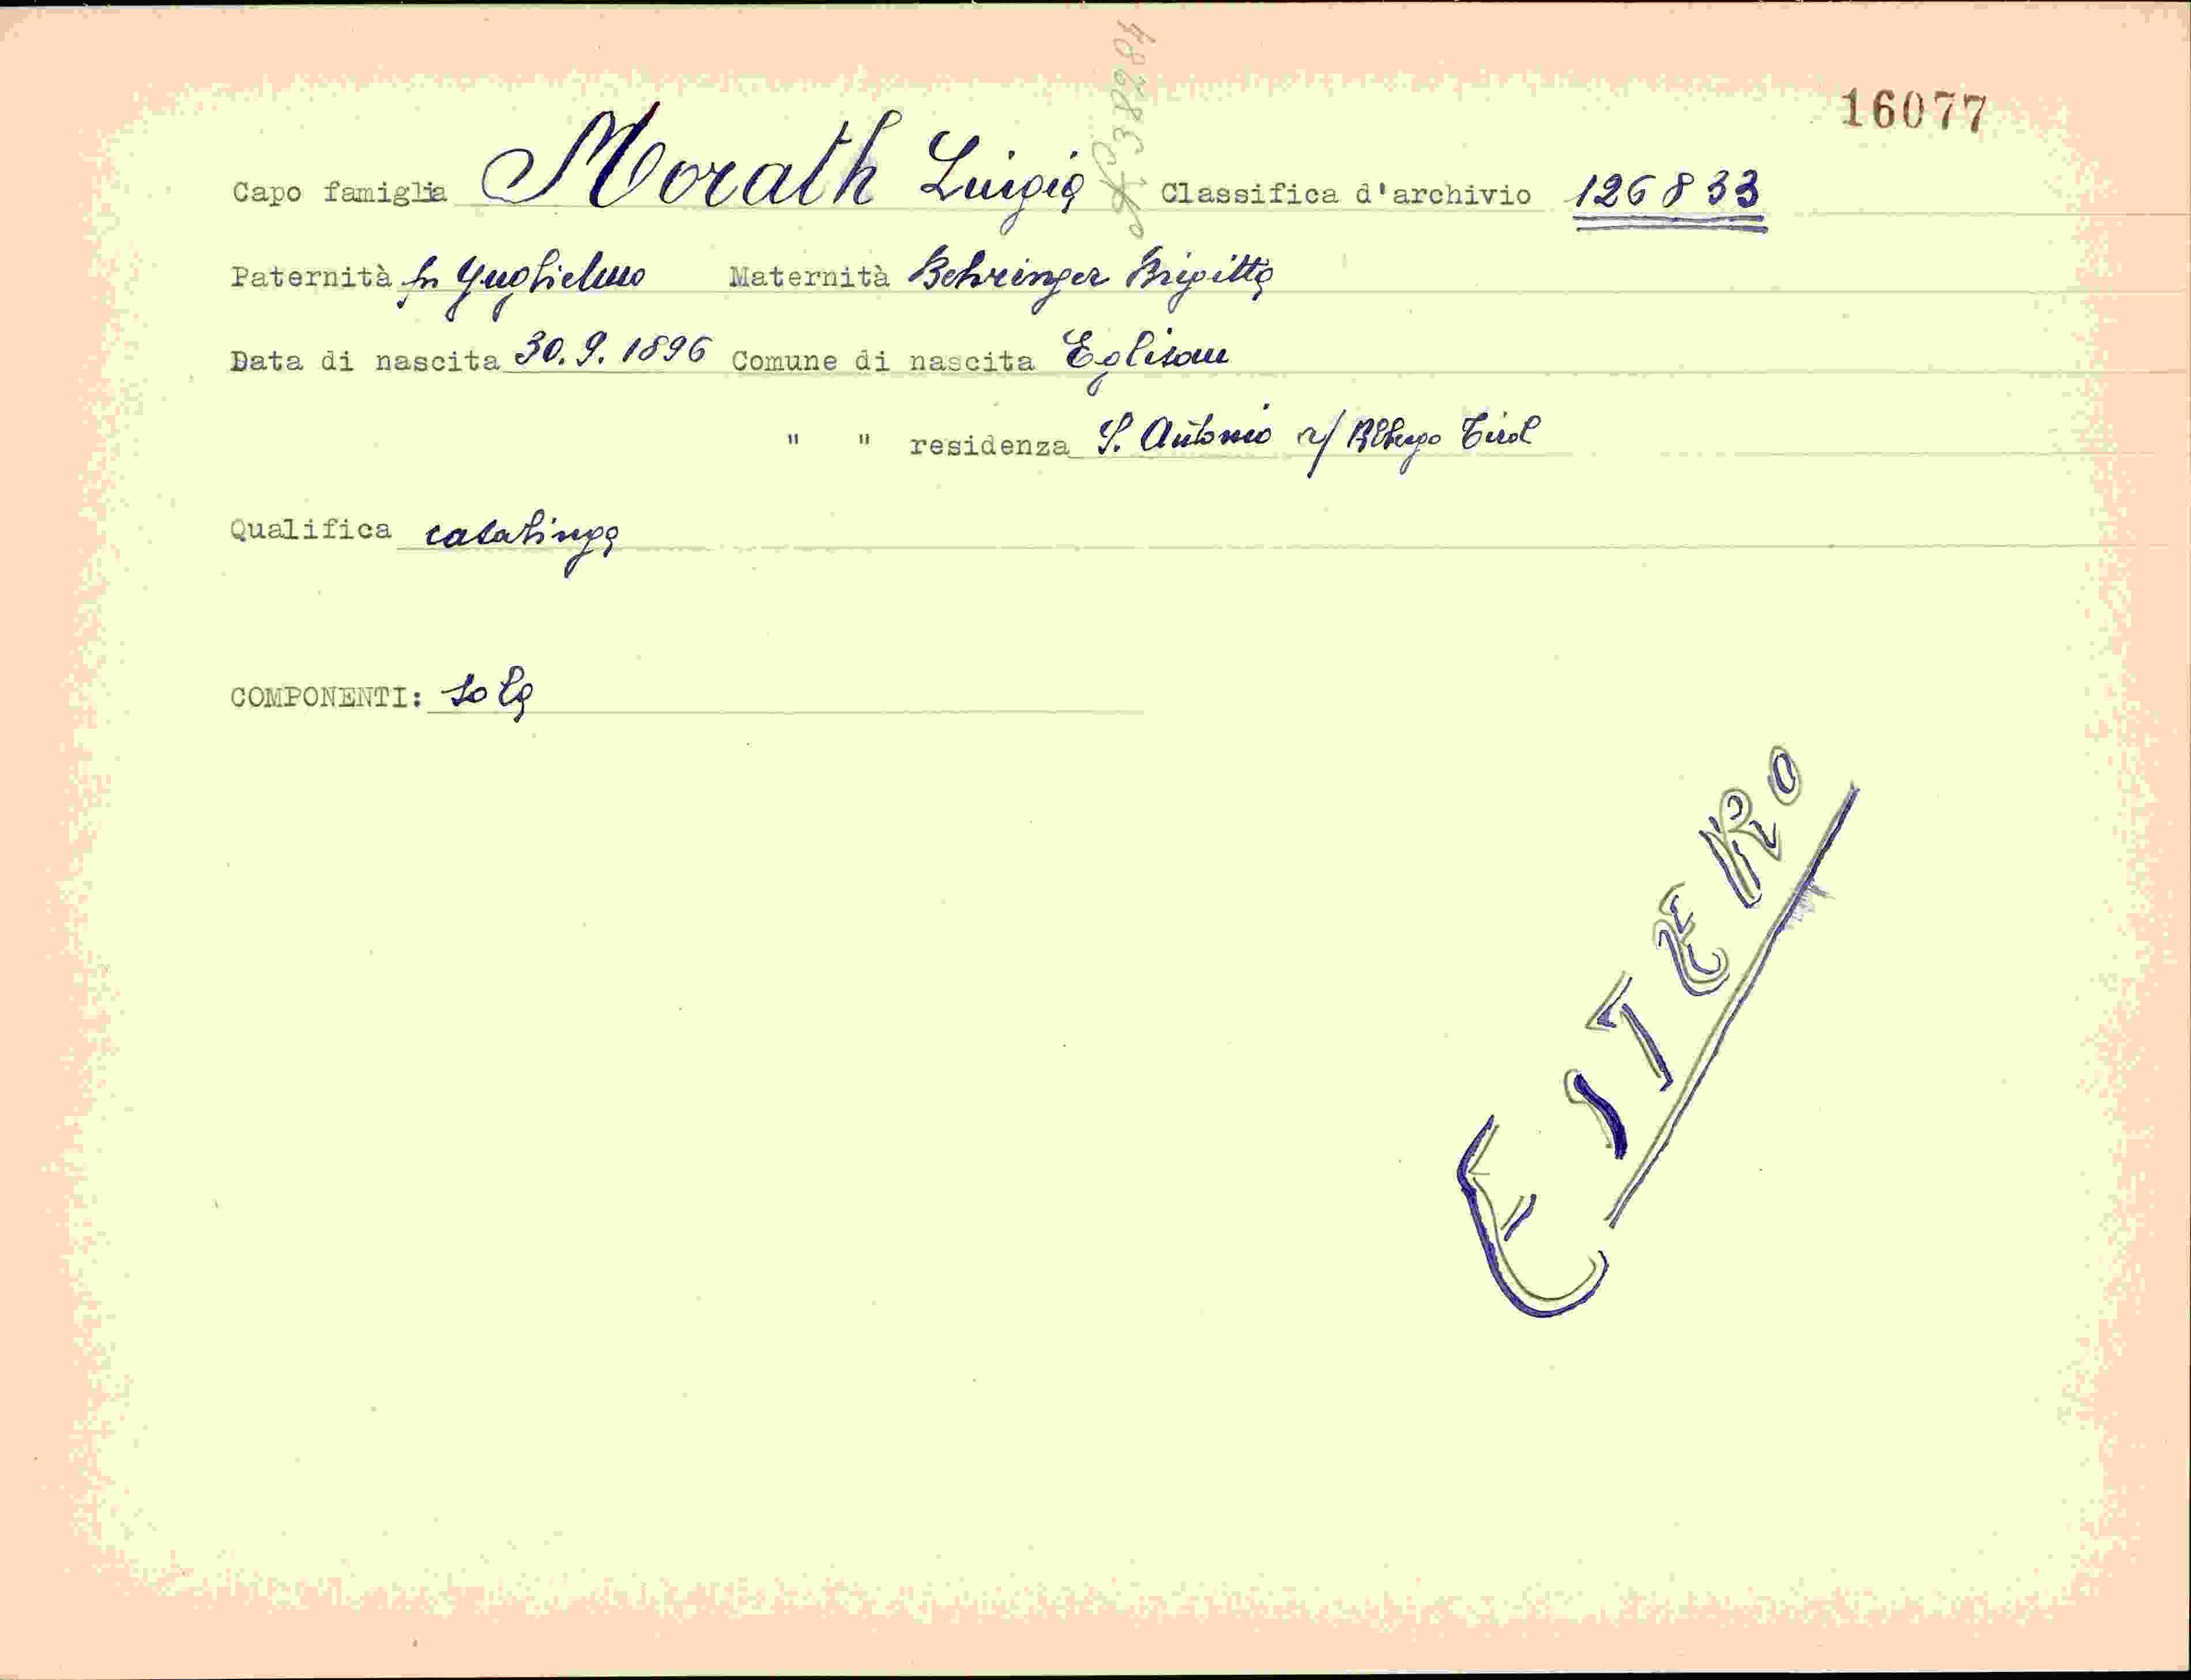 16077
Capo famiglia Morath Luigia Classifica d'archivio 126833
Paternità fu Guglielmo Maternità Behringer Brigitta
Data di nascita 30.9.1896 Comune di nascita Eglisau
" " residenza S. Antonio r/ Albergo Tirol
Qualifica casalinga
COMPONENTI: sola
ESTERO